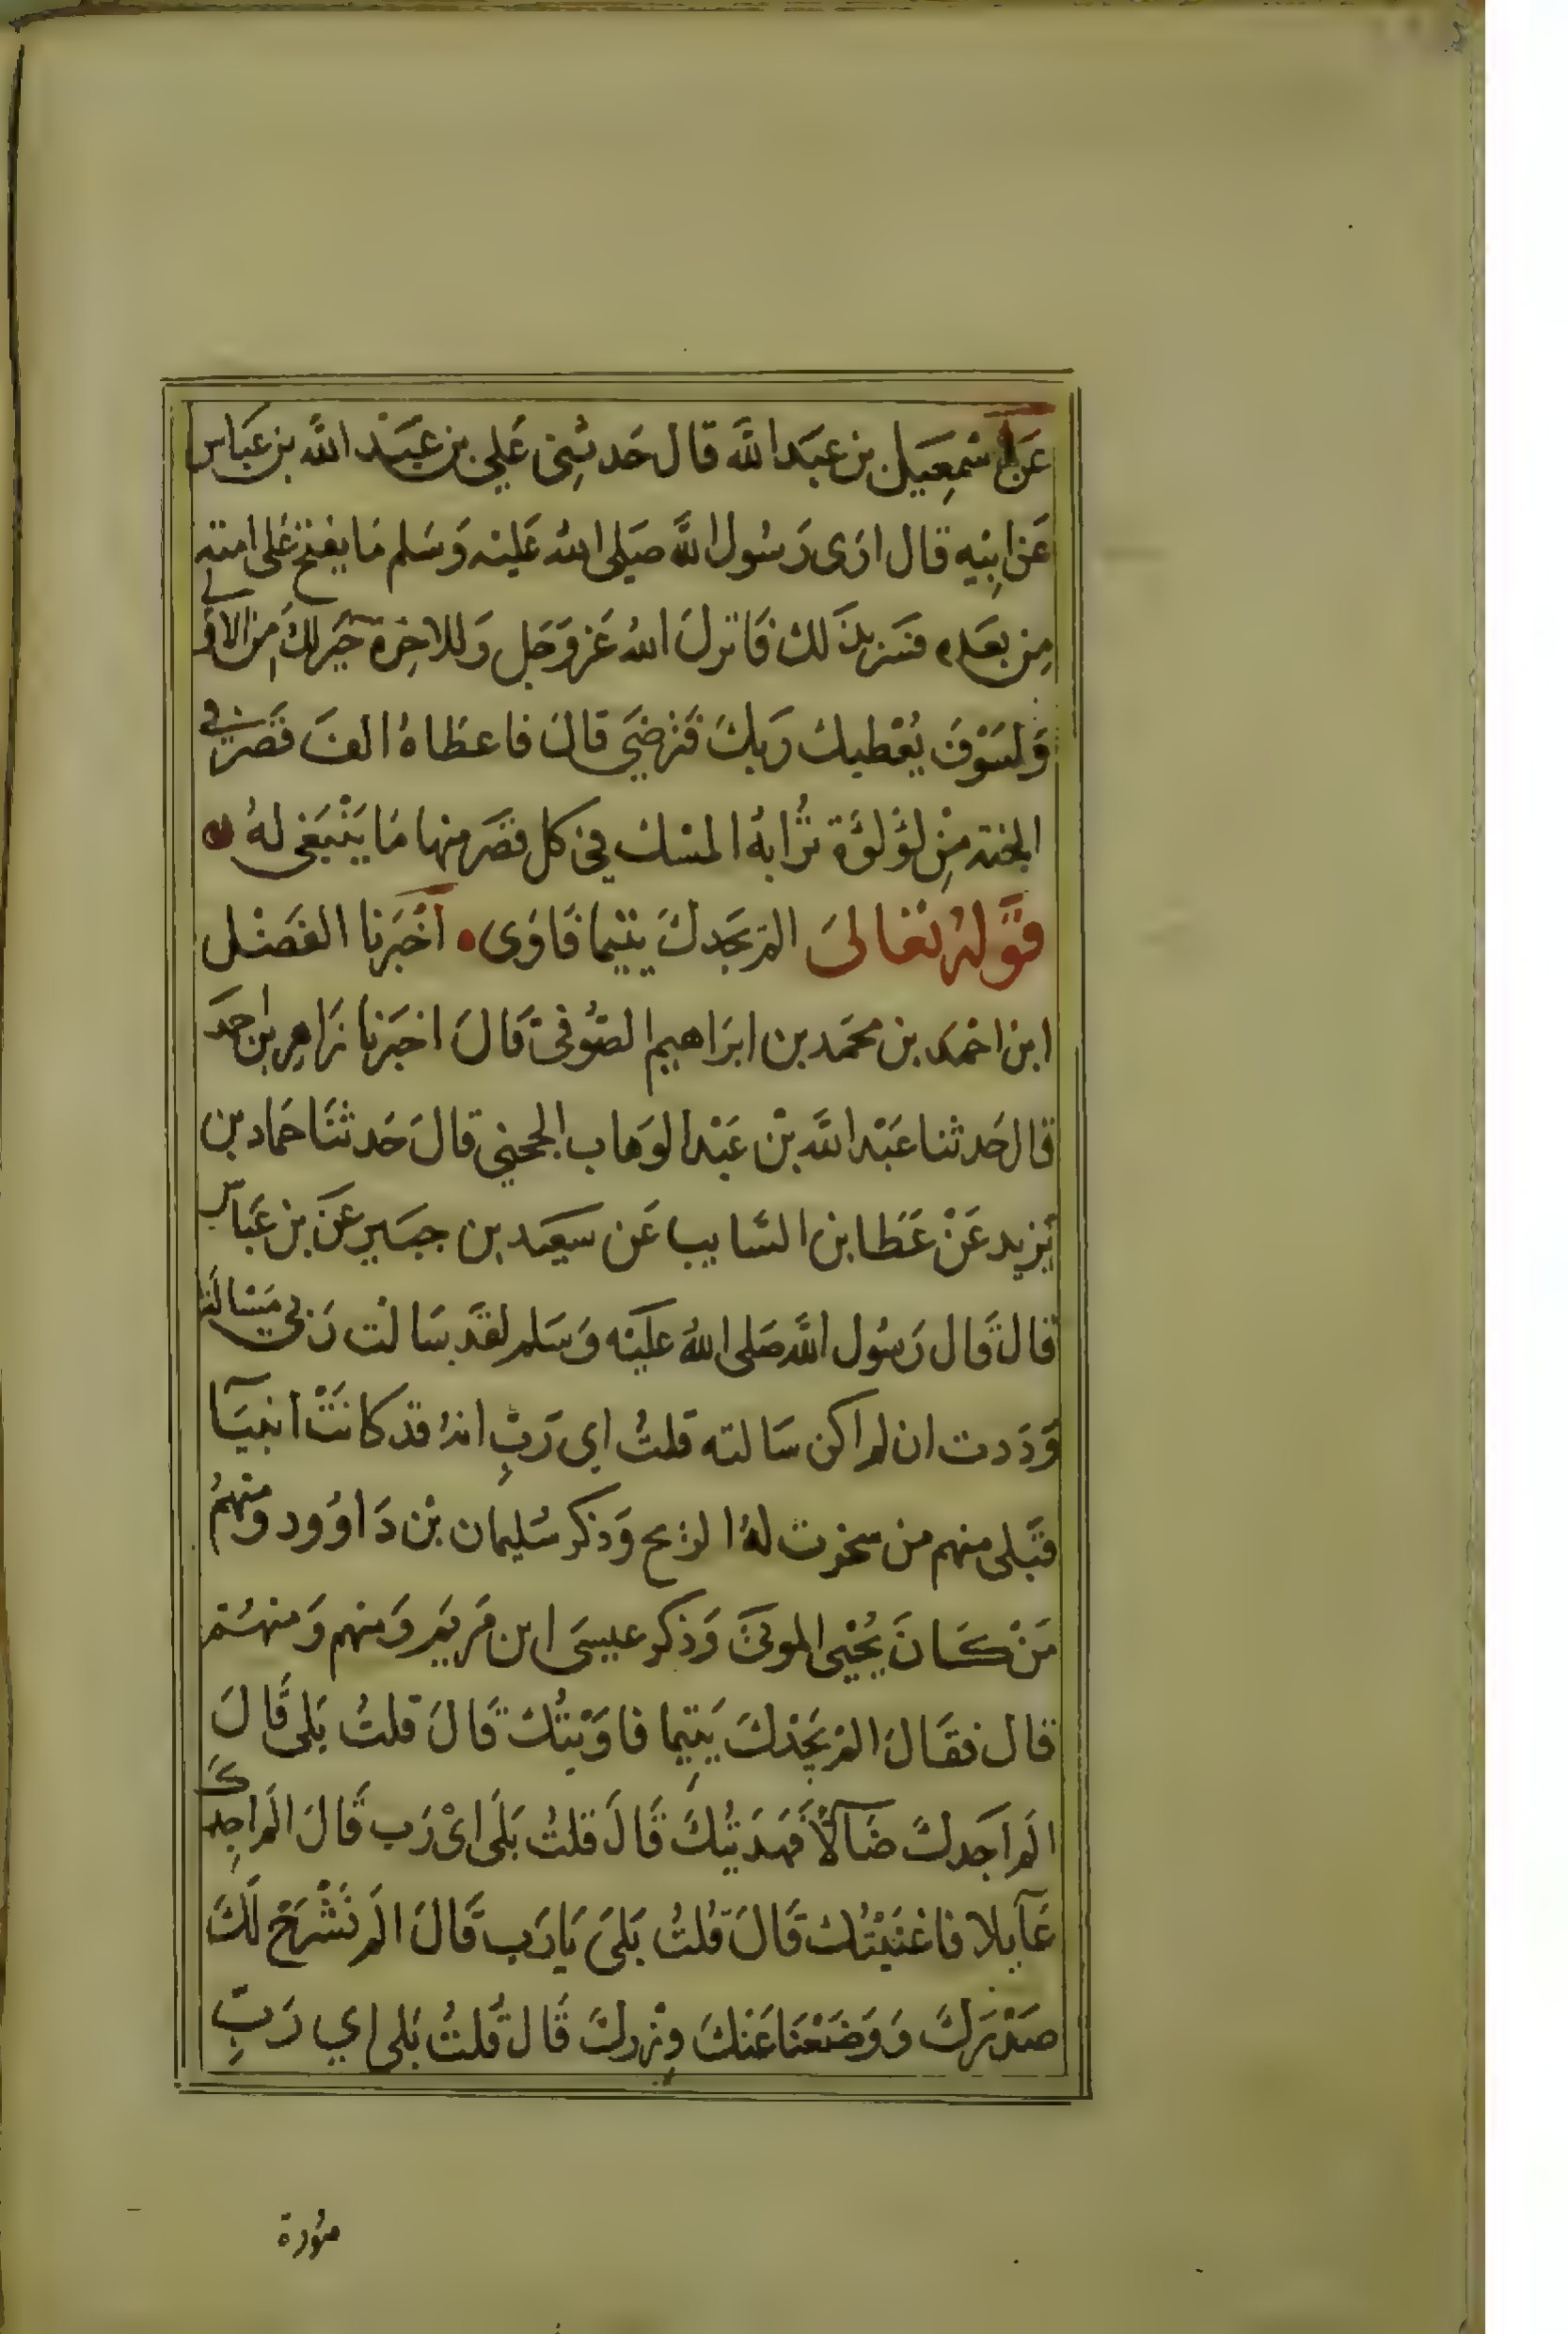 عن اسمعيل بن عبد الله قال حدثني علي بن عبد الله بن عباس
عن ابيه قال ارى رسول الله صلى الله عليه وسلم ما يفتح على امته
من بعده فسر بذلك فانزل الله عز وجل وللاخرة خير لك من الاولى
ولسوف يعطيك ربك فترضى قال فاعطاه الف قصر في
الجنة من لؤلؤة ترابه المسك في كل قصر منها ما ينبغي له
قوله تعالى الم يجدك يتيما فاوى اخبرنا الفضل
ابن احمد بن محمد بن ابراهيم الصوفي قال اخبرنا زاهر بن احمد
قال حدثنا عبد الله بن عبد الوهاب الجحني قال حدثنا حماد بن
يزيد عن عطا بن السايب عن سعيد بن جبير عن بن عباس
قال قال رسول الله صلى الله عليه وسلم لقد سالت ربي مسالة
وددت ان لم اكن سالته قلت اي رب انه قد كانت انبيآ
قبلى منهم من سخرت له الريح وذكر سليمان بن داوود ومنهم
من كان يحيى الموتى وذكر عيسى ابن مريم ومنهم ومنهم
قال فقال الم يجدك يتيما فاويتك قال قلت بلى قال
الم اجدك ضآلا فهديتك قال قلت بلى اى رب قال الم اجدك
عآيلا فاغنيتك قال قلت بلى يا رب قال الم نشرح لك
صدرك ووضعنا عنك وزرك قال قلت بلى اي رب
سورة